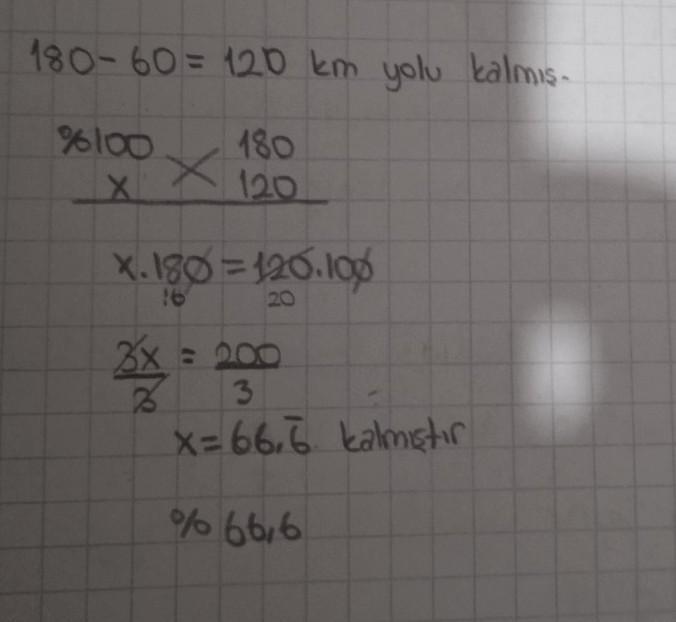 180 - 60 = 120 km yolu kalmış.
%100 180
x 120
x.180 = 120.100
:6 20
3x/3 = 200/3
x = 66,6̅ kalmıştır
% 66,6